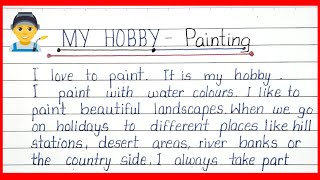 MY HOBBY - Painting
I love to paint. It is my hobby.
I paint with water colours. I like to
paint beautiful landscapes. When we go
on holidays to different places like hill
stations, desert areas, river banks or
the country side, I always take part